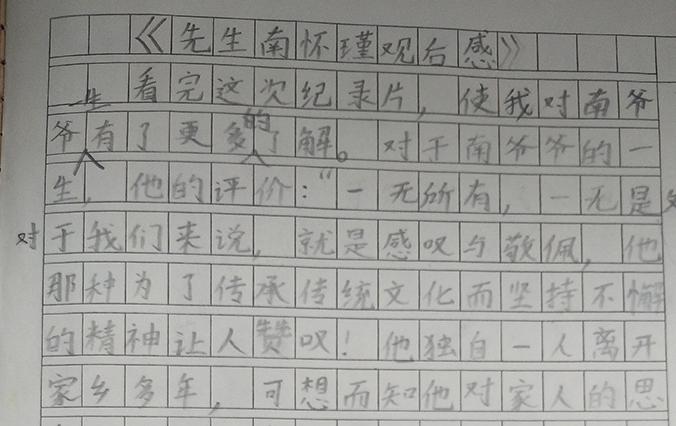 《先生南怀瑾观后感》
看完这次纪录片，使我对南爷
爷一生有了更多的了解。对于南爷爷的一
生，他的评价：“一无所有，一无是处
对于我们来说，就是感叹与敬佩，他
那种为了传承传统文化而坚持不懈
的精神让人赞叹！他独自一人离开
家乡多年，可想而知他对家人的思